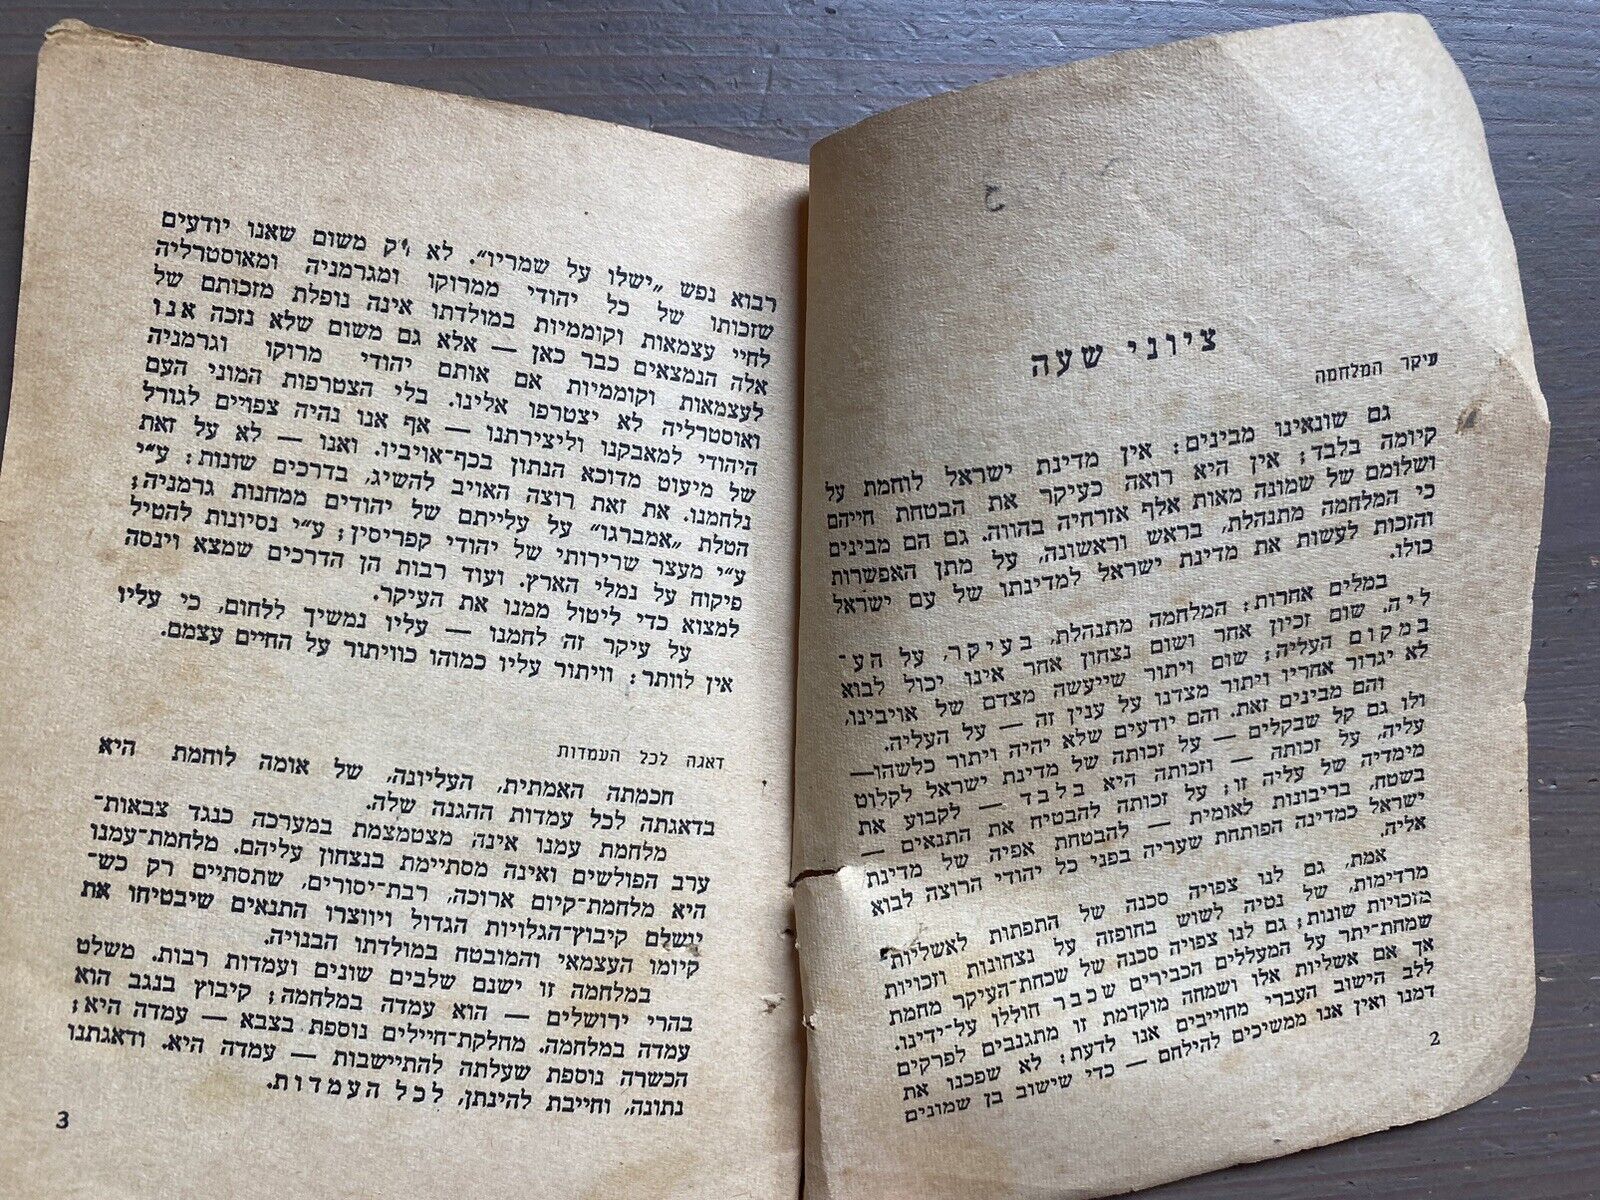 ציוני שעה
עיקר המלחמה
גם שונאינו מבינים: אין מדינת ישראל לוחמת על
קיומה בלבד; אין היא רואה כעיקר את הבטחת חייהם
ושלומם של שמונה מאות אלף אזרחיה בהווה. גם הם מבינים
כי המלחמה מתנהלת, בראש וראשונה, על מתן האפשרות
והזכות לעשות את מדינת ישראל למדינתו של עם ישראל
כולו.
במלים אחרות: המלחמה מתנהלת, בעיקר, על הע־
ליה. שום זכיון אחר ושום נצחון אחר אינו יכול לבוא
במקום העליה; שום ויתור שייעשה מצדם של אויבינו,
לא יגרור אחריו ויתור מצדנו על ענין זה — על העליה.
והם מבינים זאת. והם יודעים שלא יהיה ויתור כלשהו —
ולו גם קל שבקלים — על זכותה של מדינת ישראל לקלוט
עליה, על זכותה — וזכותה היא בלבד — לקבוע את
מימדיה של עליה זו; על זכותה להבטיח את התנאים —
בשטח, בריבונות לאומית — להבטחת אפיה של מדינת
ישראל כמדינה הפותחת שעריה בפני כל יהודי הרוצה לבוא
אליה.
אמת, גם לנו צפויה סכנה של התפתות לאשליות
מרדימות, של נטיה לשוש בחופזה על נצחונות וזכויות
מזכויות שונות; גם לנו צפויה סכנה של שכחת־העיקר מחמת
שמחת־יתר על המעללים הכבירים שכבר חוללו על־ידינו.
אך אם אשליות אלו ושמחה מוקדמת זו מתגנבים לפרקים
ללב הישוב העברי מחוייבים אנו לדעת: לא שפכנו את
דמנו ואין אנו ממשיכים להילחם — כדי שישוב בן שמונים
2
רבוא נפש „ישלו על שמריו”. לא רק משום שאנו יודעים
שזכותו של כל יהודי ממרוקו ומגרמניה ומאוסטרליה
לחיי עצמאות וקוממיות במולדתו אינה נופלת מזכותם של
אלה הנמצאים כבר כאן — אלא גם משום שלא נזכה אנו
לעצמאות וקוממיות אם אותם יהודי מרוקו וגרמניה
ואוסטרליה לא יצטרפו אלינו. בלי הצטרפות המוני העם
היהודי למאבקנו וליצירתנו — אף אנו נהיה צפויים לגורל
של מיעוט מדוכא הנתון בכף־אויביו. ואנו — לא על זאת
נלחמנו. את זאת רוצה האויב להשיג, בדרכים שונות: ע״י
הטלת „אמברגו” על עלייתם של יהודים ממחנות גרמניה;
ע״י מעצר שרירותי של יהודי קפריסין; ע״י נסיונות להטיל
פיקוח על נמלי הארץ. ועוד רבות הן הדרכים שמצא וינסה
למצוא כדי ליטול ממנו את העיקר.
על עיקר זה לחמנו — עליו נמשיך ללחום, כי עליו
אין לוותר; וויתור עליו כמוהו כוויתור על החיים עצמם.
דאגה לכל העמדות
חכמתה האמתית, העליונה, של אומה לוחמת היא
בדאגתה לכל עמדות ההגנה שלה.
מלחמת עמנו אינה מצטמצמת במערכה כנגד צבאות־
ערב הפולשים ואינה מסתיימת בנצחון עליהם. מלחמת־עמנו
היא מלחמת־קיום ארוכה, רבת־יסורים, שתסתיים רק כש־
יושלם קיבוץ־הגלויות הגדול ויווצרו התנאים שיבטיחו את
קיומו העצמאי והמובטח במולדתו הבנויה.
במלחמה זו ישנם שלבים שונים ועמדות רבות. משלט
בהרי ירושלים — הוא עמדה במלחמה; קיבוץ בנגב הוא
עמדה במלחמה. מחלקת־חיילים נוספת בצבא — עמדה היא;
הכשרה נוספת שעלתה להתיישבות — עמדה היא. ודאגתנו
נתונה, וחייבת להינתן, לכל העמדות.
3